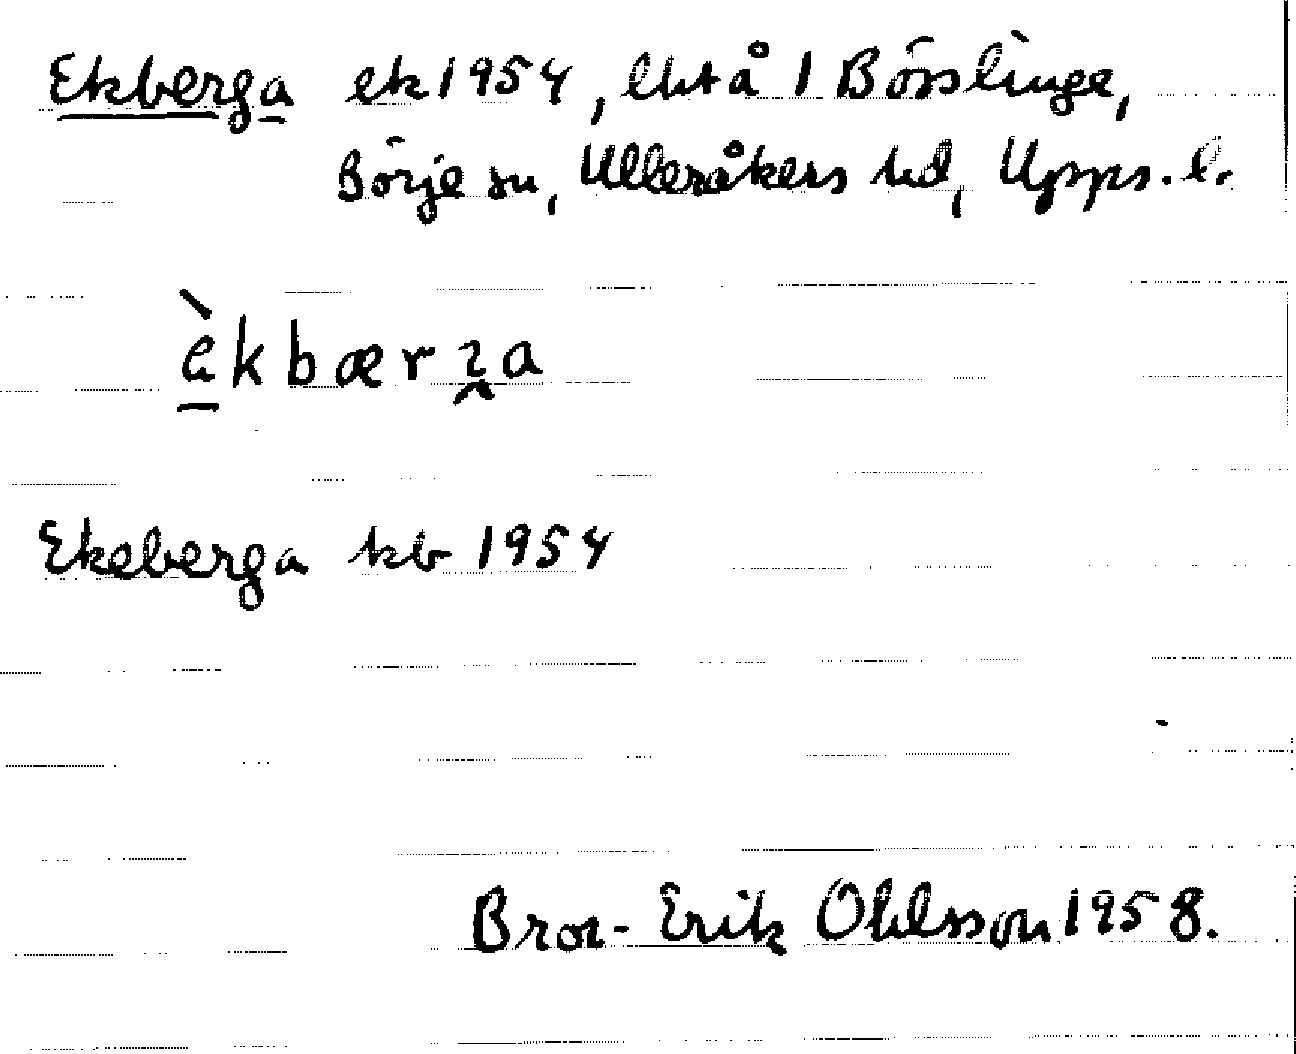 Ekberga ek 1954, lht å 1 Börslinge,
Börje sn, Ulleråkers hd, Upps. l.
èkbærꝛa
Ekeberga kb 1954
Bror-Erik Ohlsson 1958.